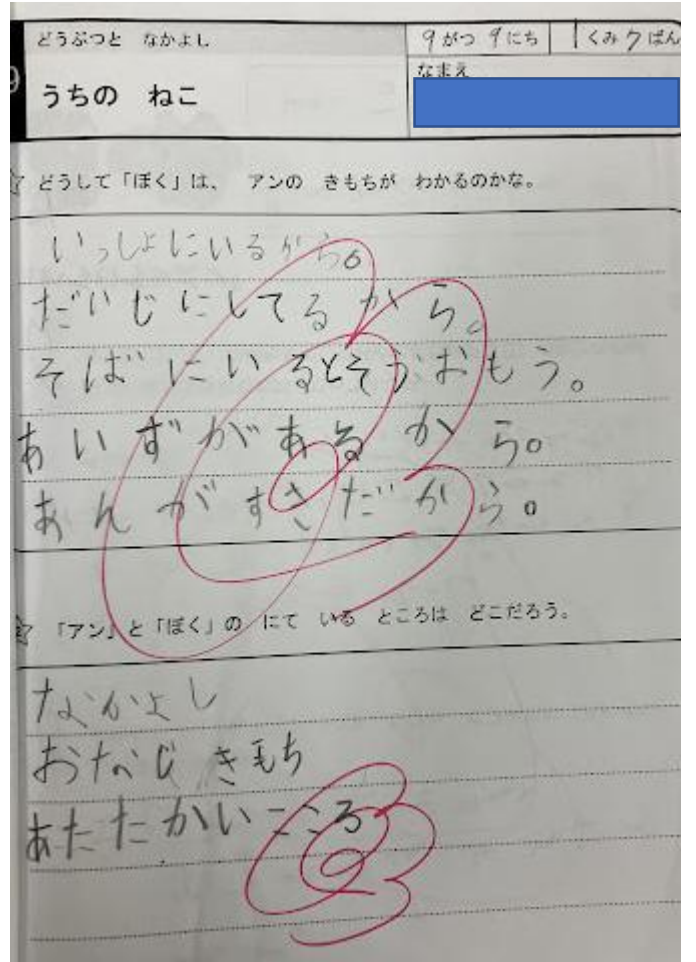 どうぶつと なかよし
9がつ 9にち 1くみ7ばん
なまえ
9
うちの ねこ
どうして「ぼく」は、 アンの きもちが わかるのかな。
いっしょにいるから。
だいじにしてるから。
そばにいるとそうおもう。
あいずがあるから。
あんがすきだから。
「アン」と「ぼく」の にて いる ところは どこだろう。
なかよし
おなじきもち
あたたかいこころ